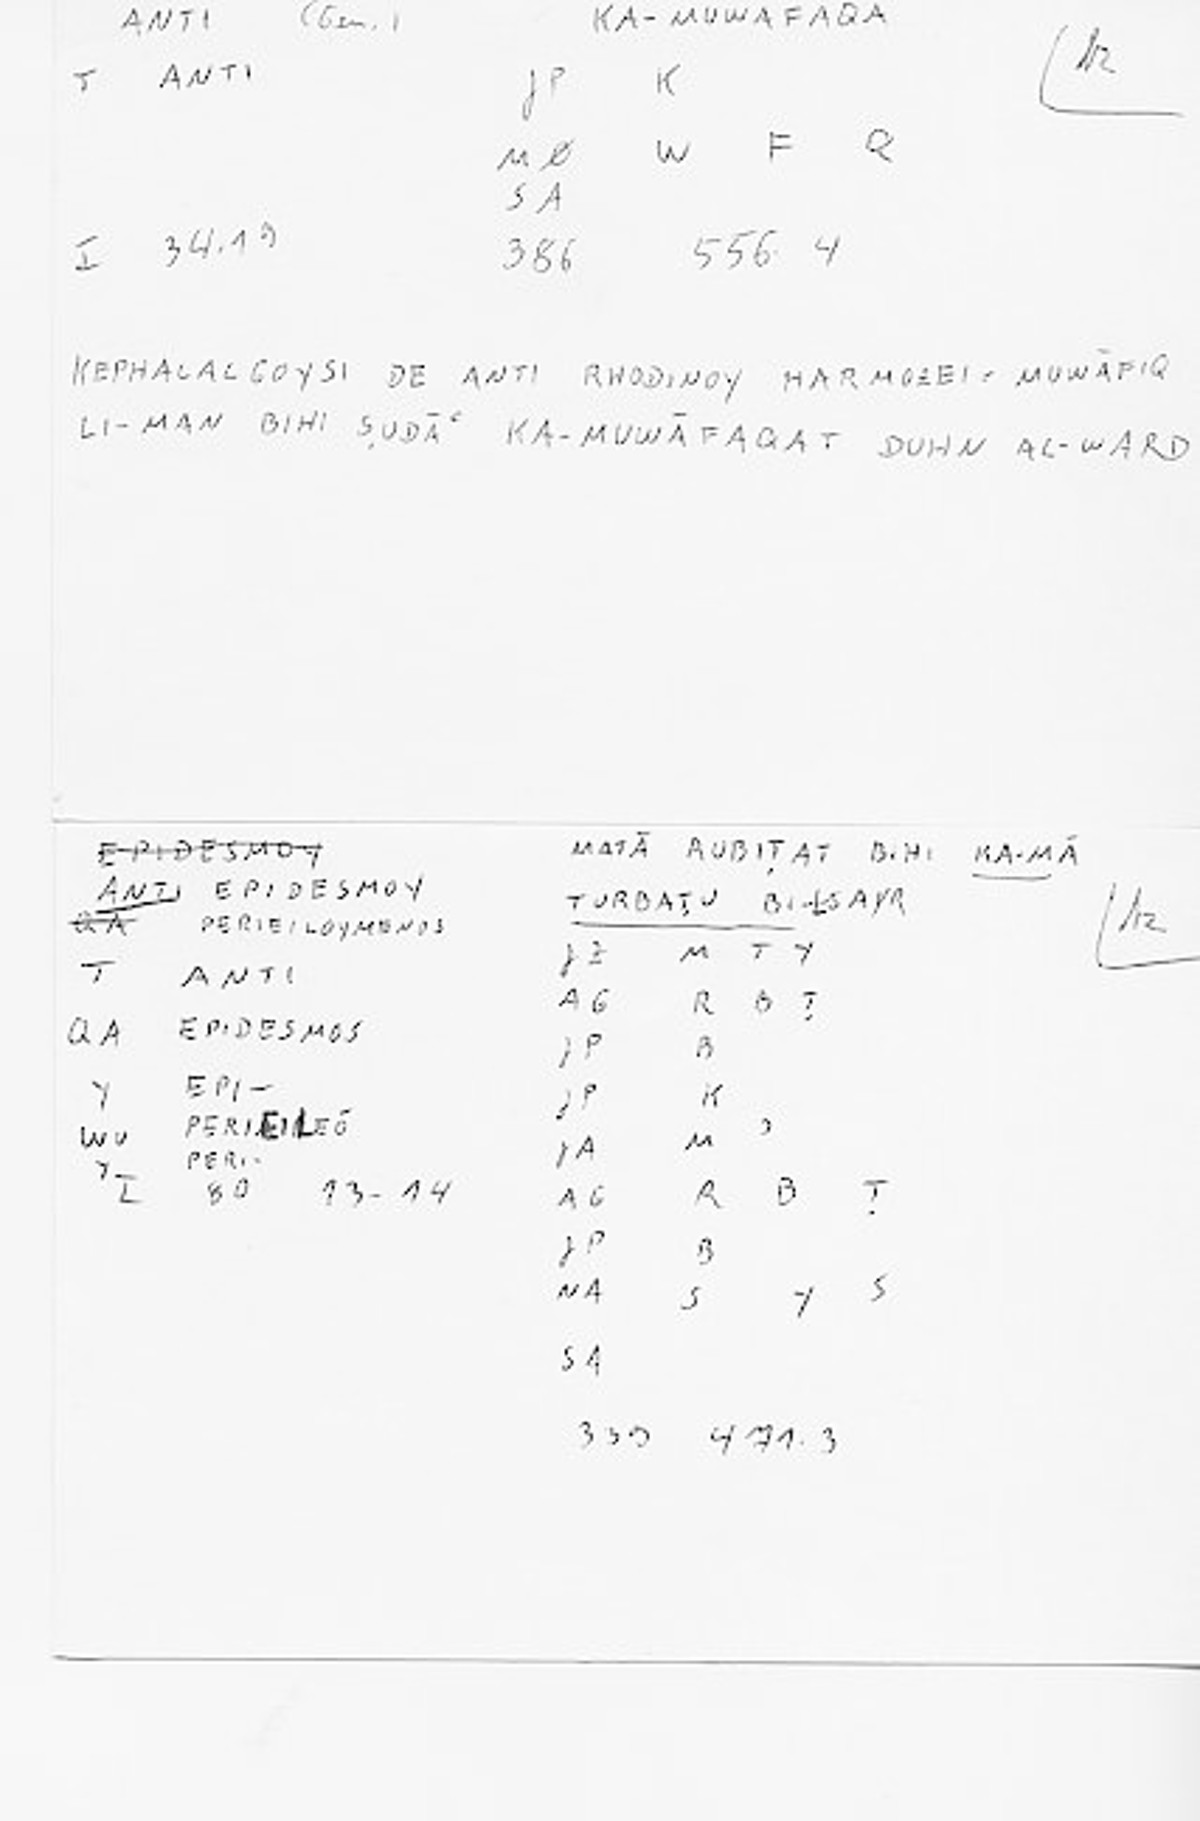 ANTI (Gen.) KA-MUWAFAQA
T ANTI JP K
MØ W F Q
SA
I 34.19 386 556.4
KEPHALALGOYSI DE ANTI RHODINOY HARMOZEI: MUWĀFIQ
LI-MAN BIHI ṢUDĀʿ KA-MUWĀFAQAT DUHN AL-WARD
EPIDESMOY MATĀ RUBIṬAT BIHI KA-MĀ
ANTI EPIDESMOY TURBAṬU BI-LSAYR
QA PERIEILOYMENOS
JZ M T Y
T ANTI
AG R B Ṭ
QA EPIDESMOS
JP B
Y EPI-
JP K
WU PERIEILEŌ
JA M ʾ
Y PERI-
I 80 13-14
AG R B Ṭ
JP B
NA S Y S
SA
339 471.3